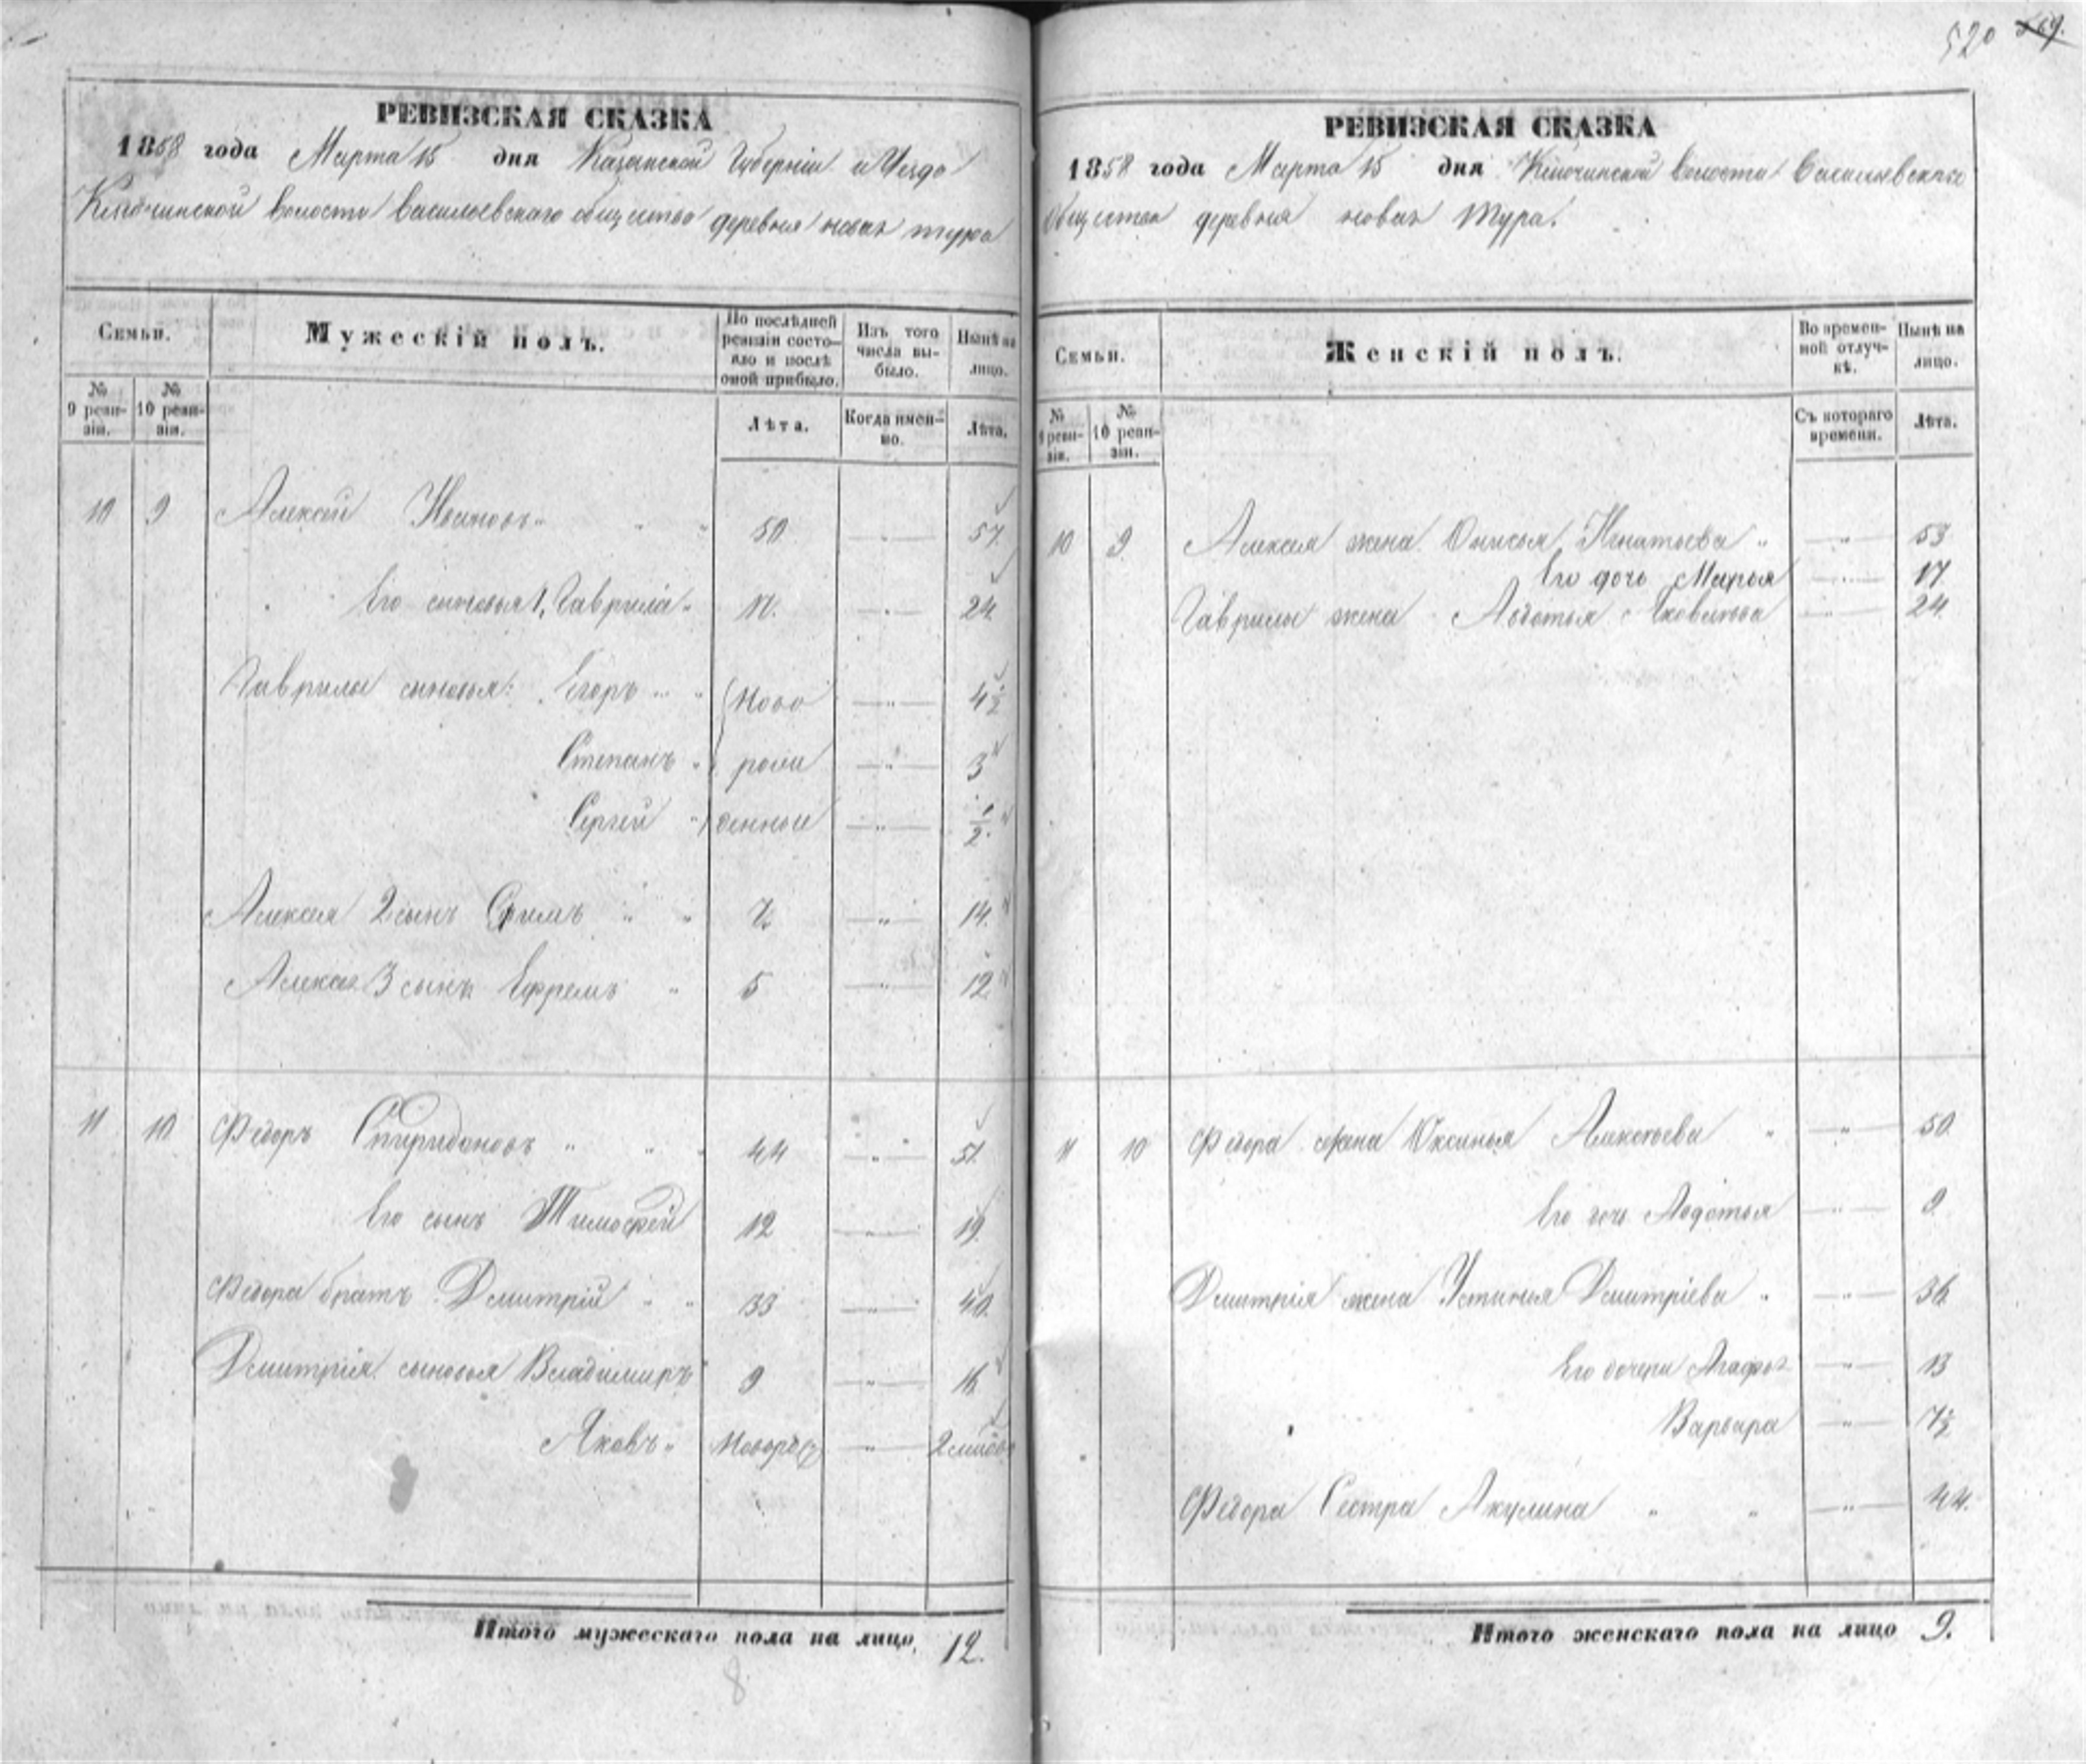 520 519.
РЕВИЗСКАЯ СКАЗКА
1858 года Марта 15 дня Казанской Губерніи и Уезда
волости Васильевскаго общества деревня новая тура
Семьи.
Мужескій полъ.
По послѣдней ревизіи состояло и послѣ оной прибыло.
Изъ того числа выбыло.
Нынѣ на лицо.
№ 9 ревизіи.
№ 10 ревизіи.
Лѣта.
Когда именно.
Лѣта.
10 9 Алексей Ивановъ 50 57.
Его сыновья 1, Гаврила 17. 24.
Гаврилы сыновья: Егоръ Ново 4 1/2
Степанъ рож 3
Сергей денные 1/2.
Алексея 2 сынъ 7 14.
Алексея 3 сынъ Ефремъ 5 12
11 10 Федоръ Спиридоновъ 44 51.
Его сынъ Тимофей 12 19.
Федора братъ Дмитрій 33 40.
Дмитрія сыновья Владимиръ 9 16
Яковъ Новорож 2
Итого мужескаго пола на лицо 12.
8
РЕВИЗСКАЯ СКАЗКА
1858 года Марта 15 дня волости Васильевскаго
Общества деревня новая Тура.
Семьи.
Женскій полъ.
Во временной отлучкѣ.
Нынѣ на лицо.
№ 9 ревизіи.
№ 10 ревизіи.
Съ котораго времени.
Лѣта.
10 9 Алексея жена Онисья Игнатьева 53
Его дочь Марья 17
Гаврилы жена Авдотья Яковлева 24
11 10 Федора жена Оксинья Алексеева 50
Его дочь Авдотья 9
Дмитрія жена Устинья Дмитріева 36
Его дочери Агафья 13
Варвара 7 1/2
Федора Сестра Акулина 44.
Итого женскаго пола на лицо 9.